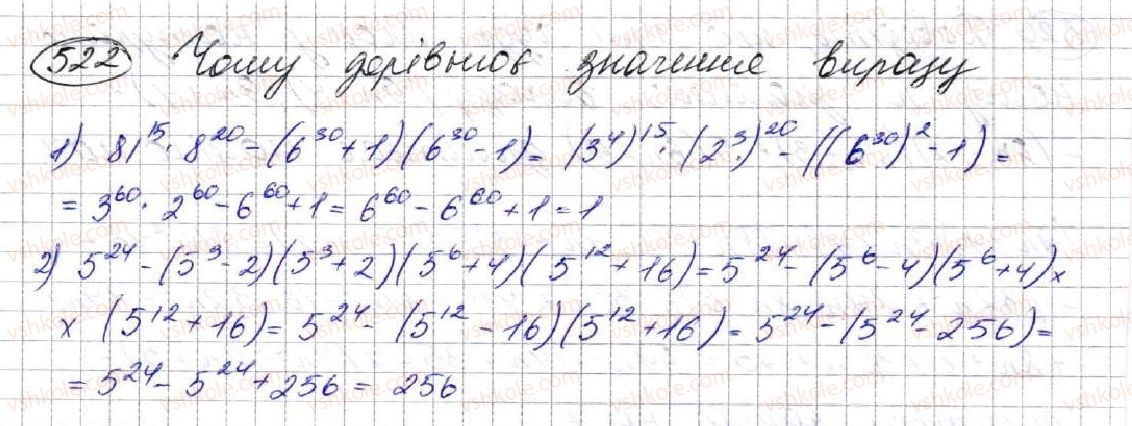 522 Чому дорівнює значення виразу
1) 81¹⁵ · 8²⁰ - (6³⁰ + 1)(6³⁰ - 1) = (3⁴)¹⁵ · (2³)²⁰ - ((6³⁰)² - 1) =
= 3⁶⁰ · 2⁶⁰ - 6⁶⁰ + 1 = 6⁶⁰ - 6⁶⁰ + 1 = 1
2) 5²⁴ - (5³ - 2)(5³ + 2)(5⁶ + 4)(5¹² + 16) = 5²⁴ - (5⁶ - 4)(5⁶ + 4) ×
× (5¹² + 16) = 5²⁴ - (5¹² - 16)(5¹² + 16) = 5²⁴ - (5²⁴ - 256) =
= 5²⁴ - 5²⁴ + 256 = 256